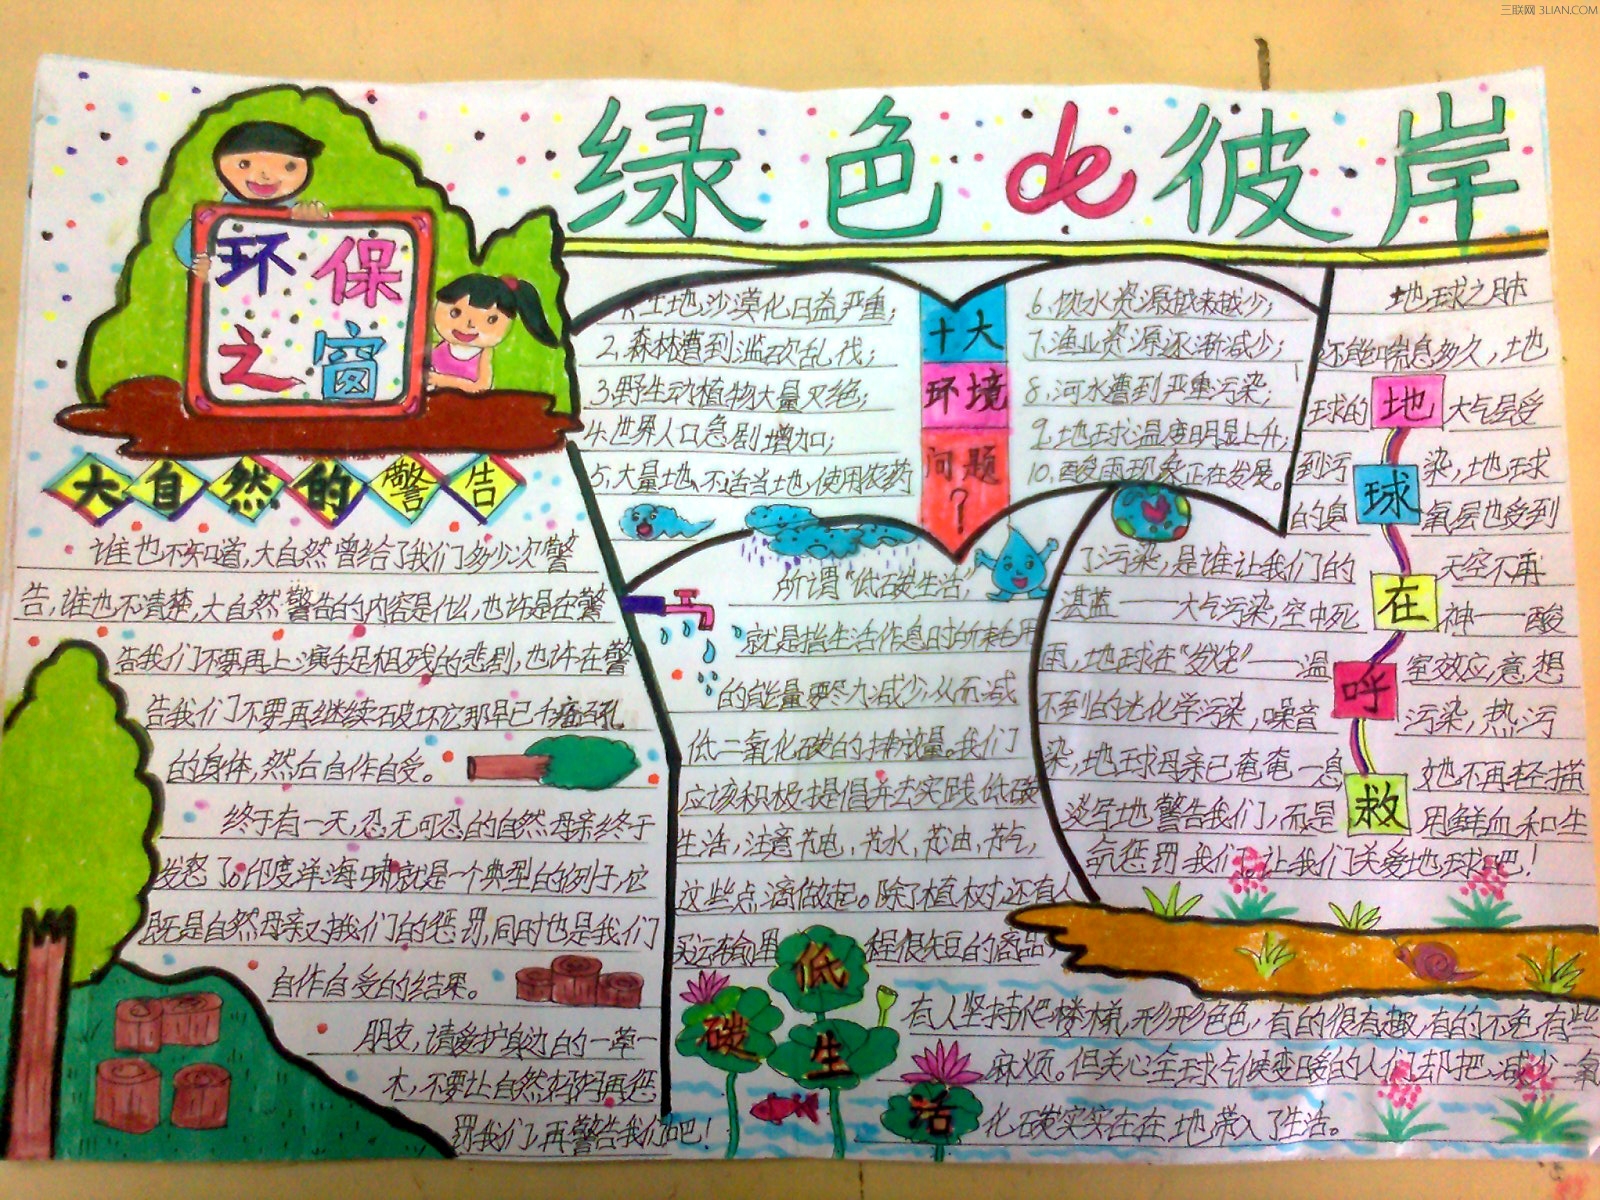 三联网 3LIAN.COM
绿色de彼岸
环保
之窗
大自然的警告
谁也不知道,大自然曾给了我们多少次警
告,谁也不清楚,大自然警告的内容是什么,也许是在警
告我们不要再上演手足相残的悲剧,也许在警
告我们不要再继续破坏它那早已千疮百孔
的身体,然后自作自受。
终于有一天,忍无可忍的自然母亲终于
发怒了。印度洋海啸就是一个典型的例子,它
既是自然母亲对我们的惩罚,同时也是我们
自作自受的结果。
朋友,请爱护身边的一草一
木,不要让自然妈妈再惩
罚我们,再警告我们吧!
十大
环境
问题
?
土地沙漠化日益严重;
2.森林遭到滥砍乱伐;
3.野生动植物大量灭绝;
4.世界人口急剧增加;
5.大量地、不适当地使用农药
6.饮水资源越来越少;
7.渔业资源逐渐减少;
8.河水遭到严重污染;
9.地球温度明显上升;
10.酸雨现象正在发展。
所谓“低碳生活”,
就是指生活作息时所耗用
的能量要尽力减少,从而减
低二氧化碳的排放量。我们
应该积极提倡并去实践低碳
生活,注意节电、节水、节油、节气,
这些点滴做起。除了植树,还有人
买运输里程很短的商品,
有人坚持爬楼梯,形形色色,有的很有趣,有的不免有些
麻烦。但关心全球气候变暖的人们却把减少二氧
化碳实实在在地带入了生活。
低
碳
生
活
地球在呼救
地球之肺
还能喘息多久,地
球的大气层受
到污染,地球
的臭氧层也受到
了污染,是谁让我们的天空不再
湛蓝——大气污染,空中死神——酸
雨,地球在“发烧”——温室效应,意想
不到的光化学污染,噪音污染,热污
染,地球母亲已奄奄一息,她不再轻描
淡写地警告我们,而是用鲜血和生
命惩罚我们。让我们关爱地球吧!